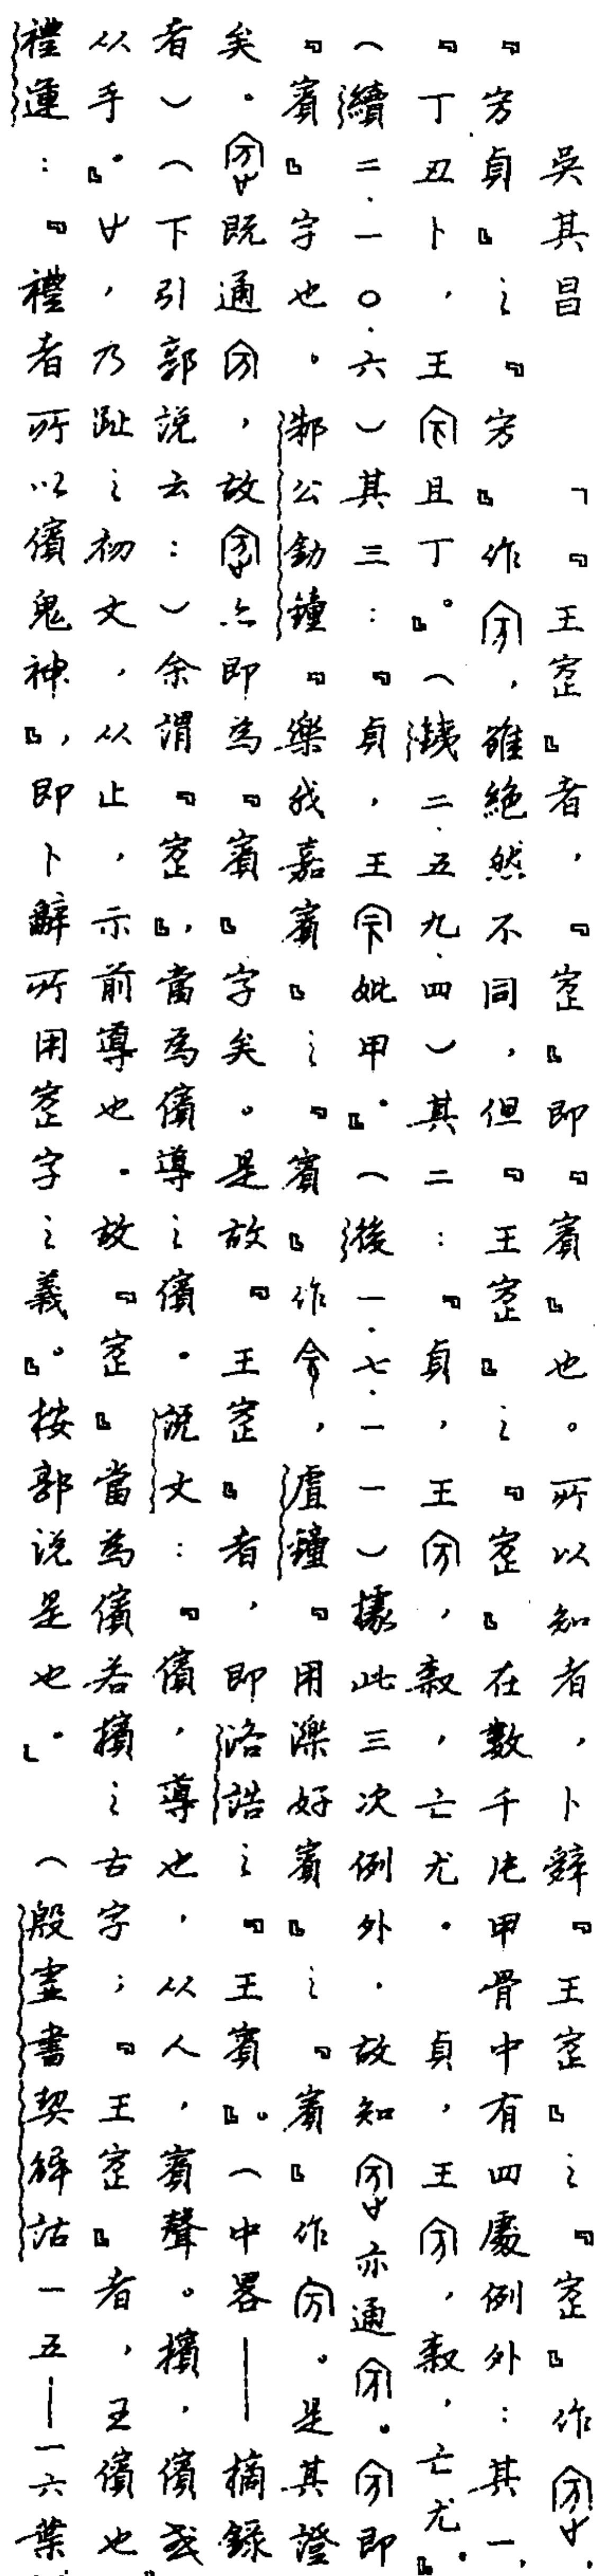 吳其昌 「『王』者,『』即『賓』也。所以知者,卜辭『王』之『』作,
『貞』之『』作,雖絕然不同,但『王』之『』在數千片甲骨中有四處例外:其一,
『丁丑卜,王且丁』。(鐵二·五九·四)其二:『貞,王,𣪘,亡尤。貞,王,𣪘,亡尤』。
(續二·一〇·六)其三:『貞,王妣甲』。(後一·七·一一)據此三次例外。故知亦通。即
『賓』字也。邾公釛鐘『樂我嘉賓』之『賓』作,虘鐘『用濼好賓』之『賓』作。是其證
矣。既通,故亦即為『賓』字矣。是故『王』者,即洛誥之『王賓』。(中畧——摘錄
者)(下引郭說云:)余謂『』,當為儐導之儐。說文:『儐,導也,从人,賓聲。擯,儐或
从手』。,乃趾之初文,从止,示前導也。故『』當為儐若擯之古字;『王』者,王儐也
禮運:『禮者所以儐鬼神』,即卜辭所用字之義』。按郭說是也。」(殷虛書契解詁一五——一六葉